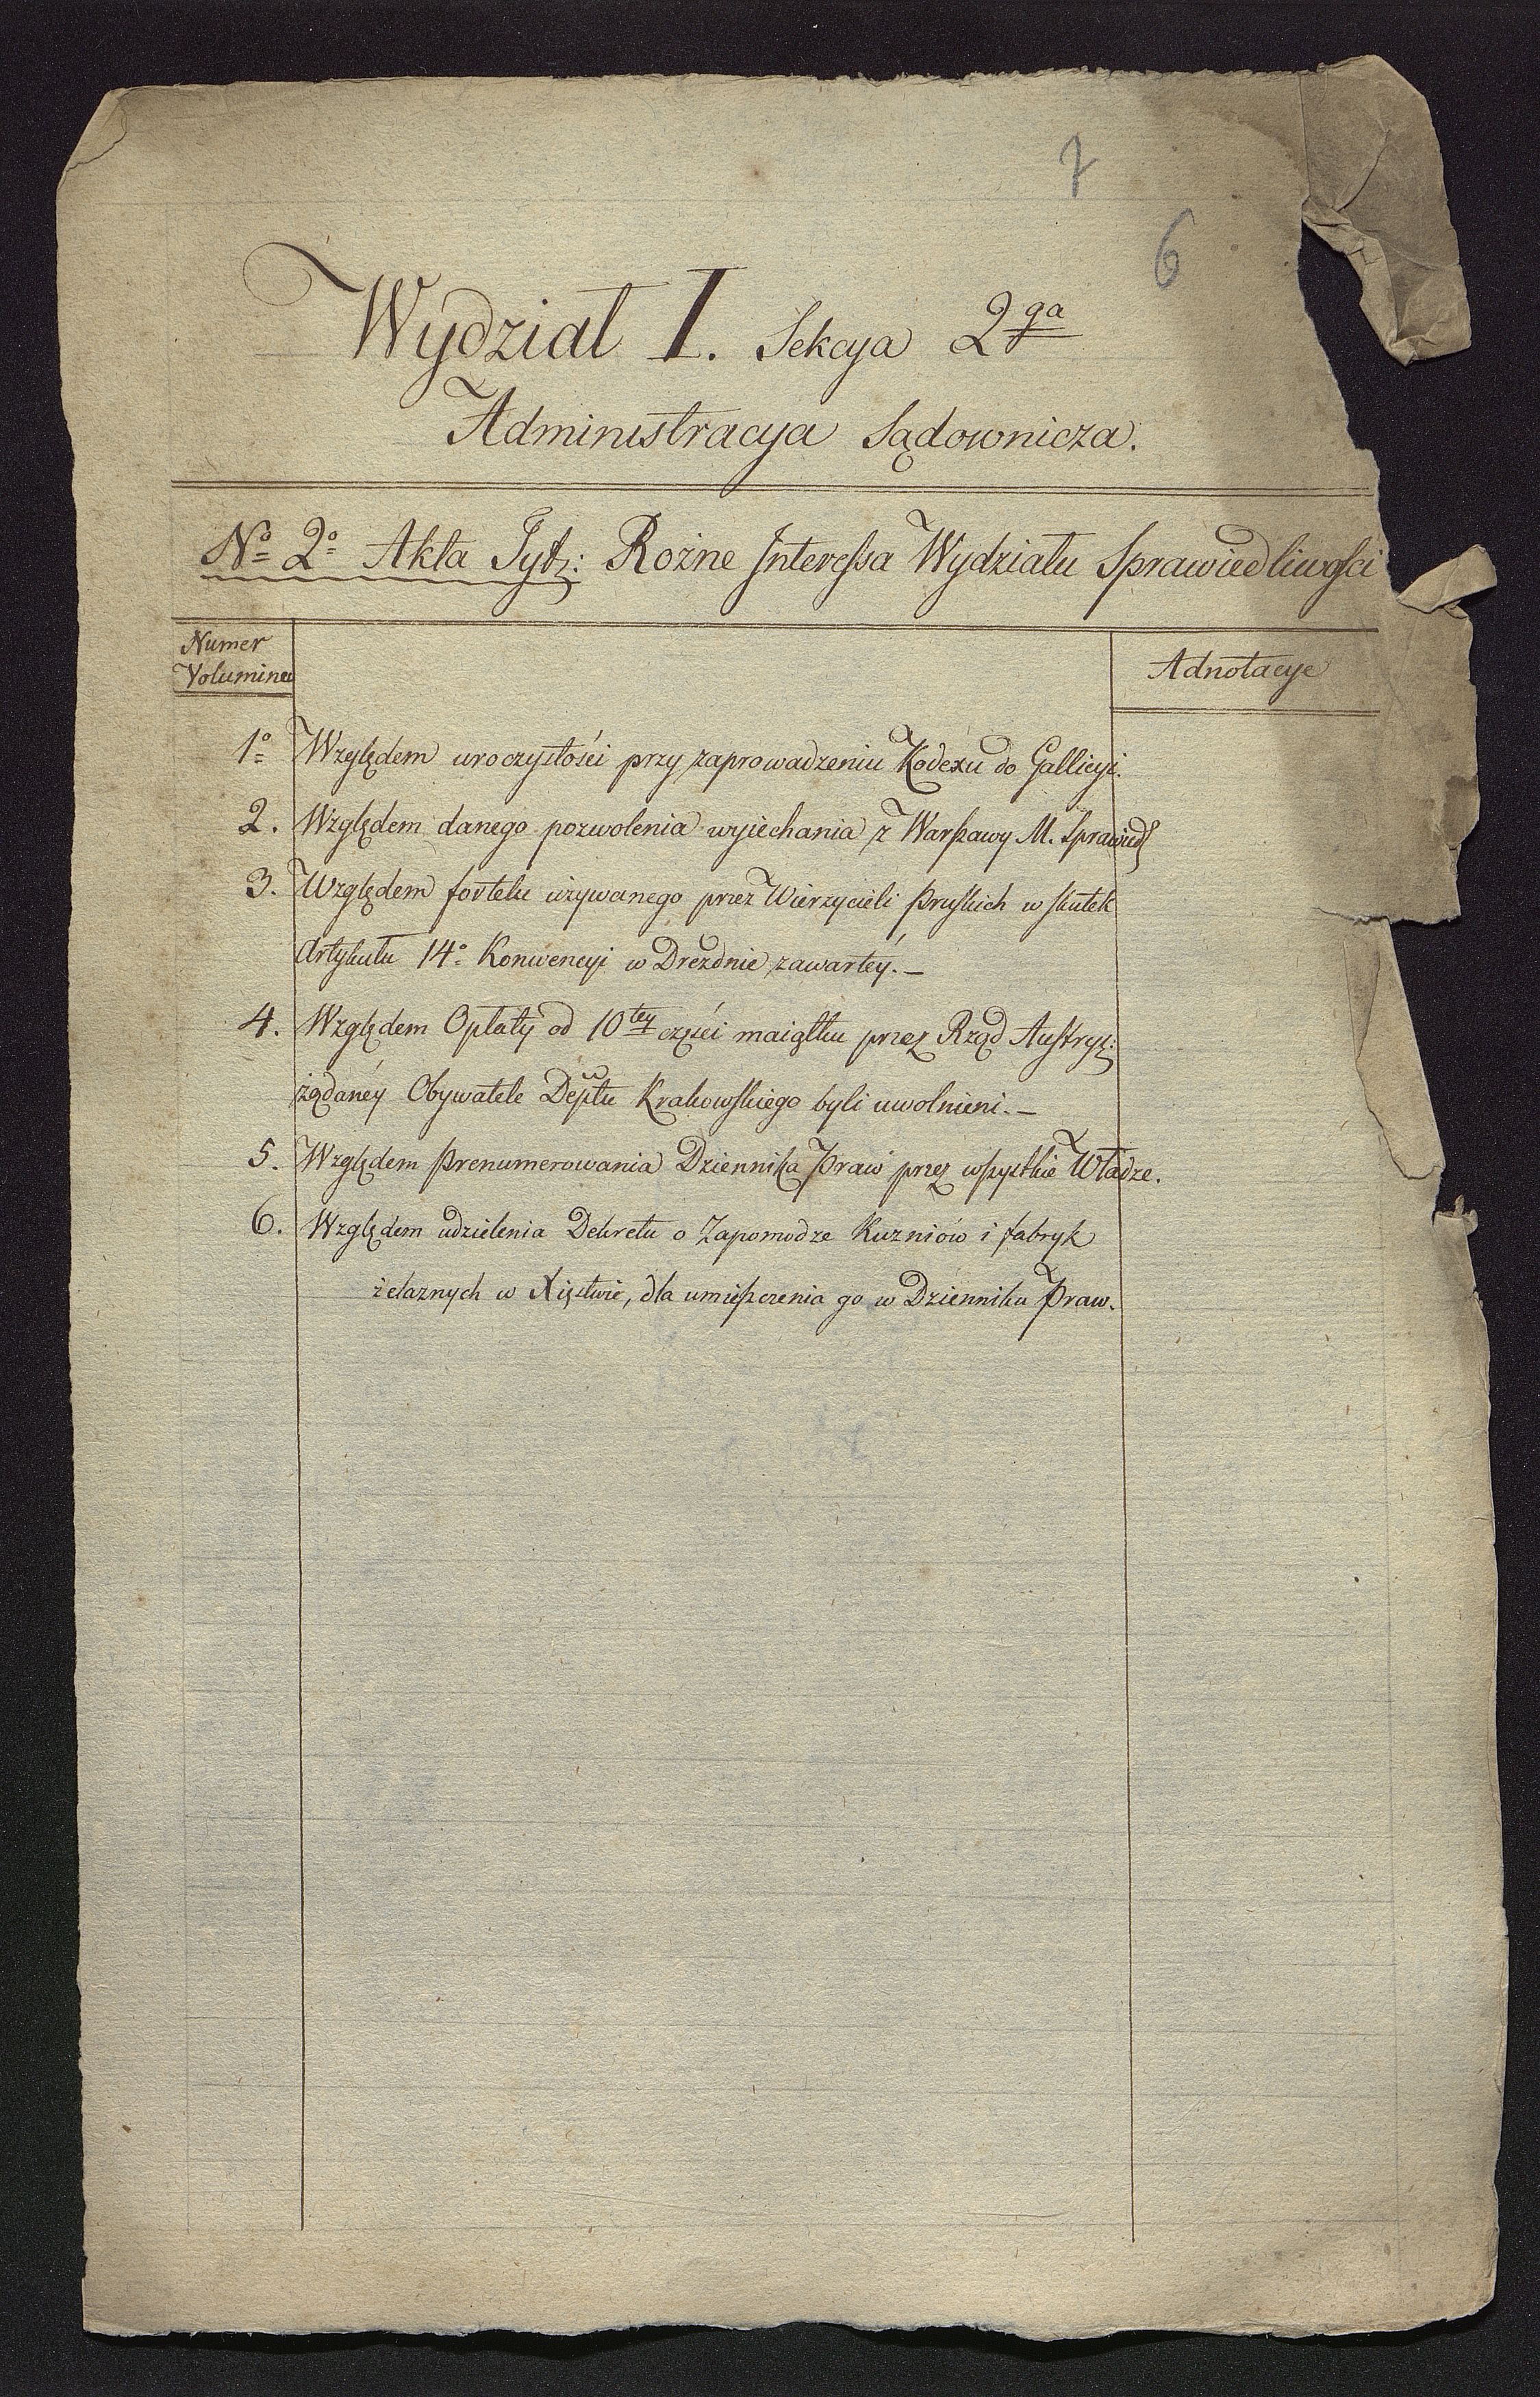 7
6
Wydział I. Sekcya 2ga
Administracya Sądownicza.
No 2o Akta Tyt: Rożne Interessa Wydziału Sprawiedliwości
Numer
Volumina
Adnotacye
1o Względem uroczystości przy zaprowadzeniu Kodexu do Gallicyi.
2. Względem danego pozwolenia wyiechania z Warszawy M. Sprawiedl
3. Względem fortelu używanego przez Wierzycieli Pruskich w skutek
Artykułu 14o Konwencyi w Dreźdnie zawartéy. —
4. Względem Opłaty od 10tey części maiątku przez Rząd Austryi:
żądanéy Obywatele Deptu Krakowskiego byli uwolnieni. —
5. Względem Prenumerowania Dziennika Praw przez wszystkie Władze.
6. Względem udzielenia Dekretu o Zapomodze Kuzniów i fabryk
żelaznych w Xięstwie, dla umieszczenia go w Dzienniku Praw.